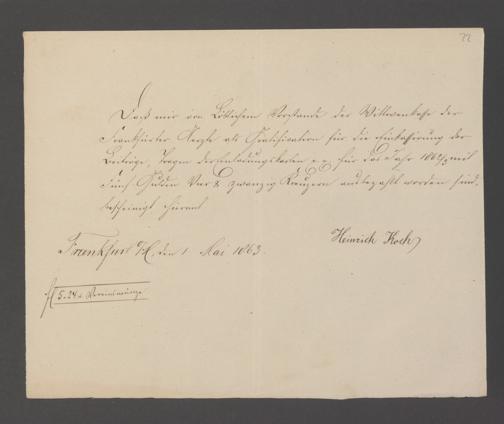 22
Daß mir von Löblichem Vorstande der Wittwenkasse der
Frankfurter Aerzte als Gratification für die Einkassirung der
Beiträge, Tragen der Einladungskarten e.c. für das Jahr 1862/3 mit
Fünf Gulden Vier & zwanzig Kreuzern ausbezahlt worden sind,
bescheinigt hiermit
Frankfurt a/M, den 1 Mai 1863.
Heinrich Koch
fl 5.24 x Vereinsmünze